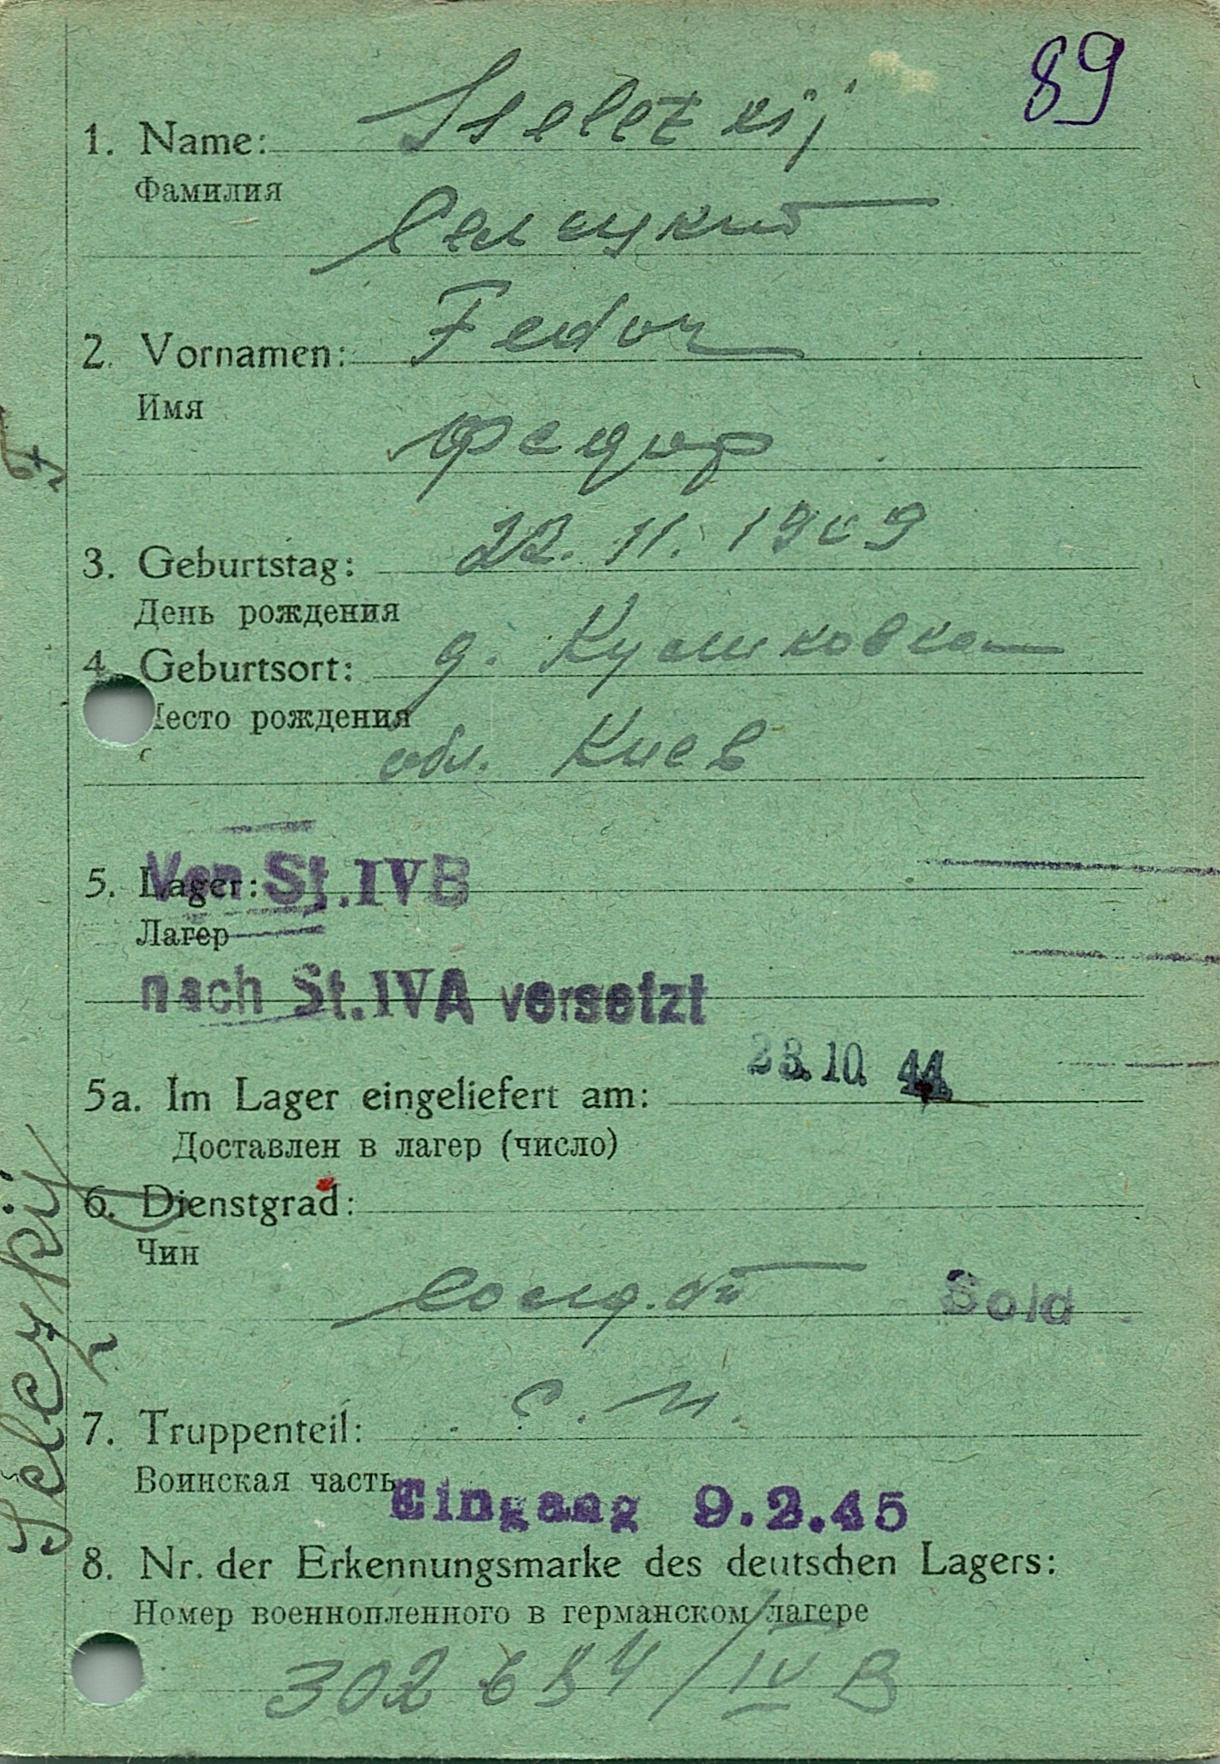 89
1. Name: Sseletzkij
Фамилия
Селецкий
2. Vornamen: Fedor
Имя
Федор
22.11.1909
3. Geburtstag:
День рождения
4. Geburtsort: д.
Место рождения
обл. Киев
Von St.IVB
5. Lager:
Лагер
nach St.IVA versetzt
23.10 44
5a. Im Lager eingeliefert am:
Доставлен в лагер (число)
6. Dienstgrad:
Чин
солдат Sold
7. Truppenteil: с. п.
Воинская часть
Eingang 9.2.45
8. Nr. der Erkennungsmarke des deutschen Lagers:
Номер военнопленного в германском лагере
/IV B
Selezkij